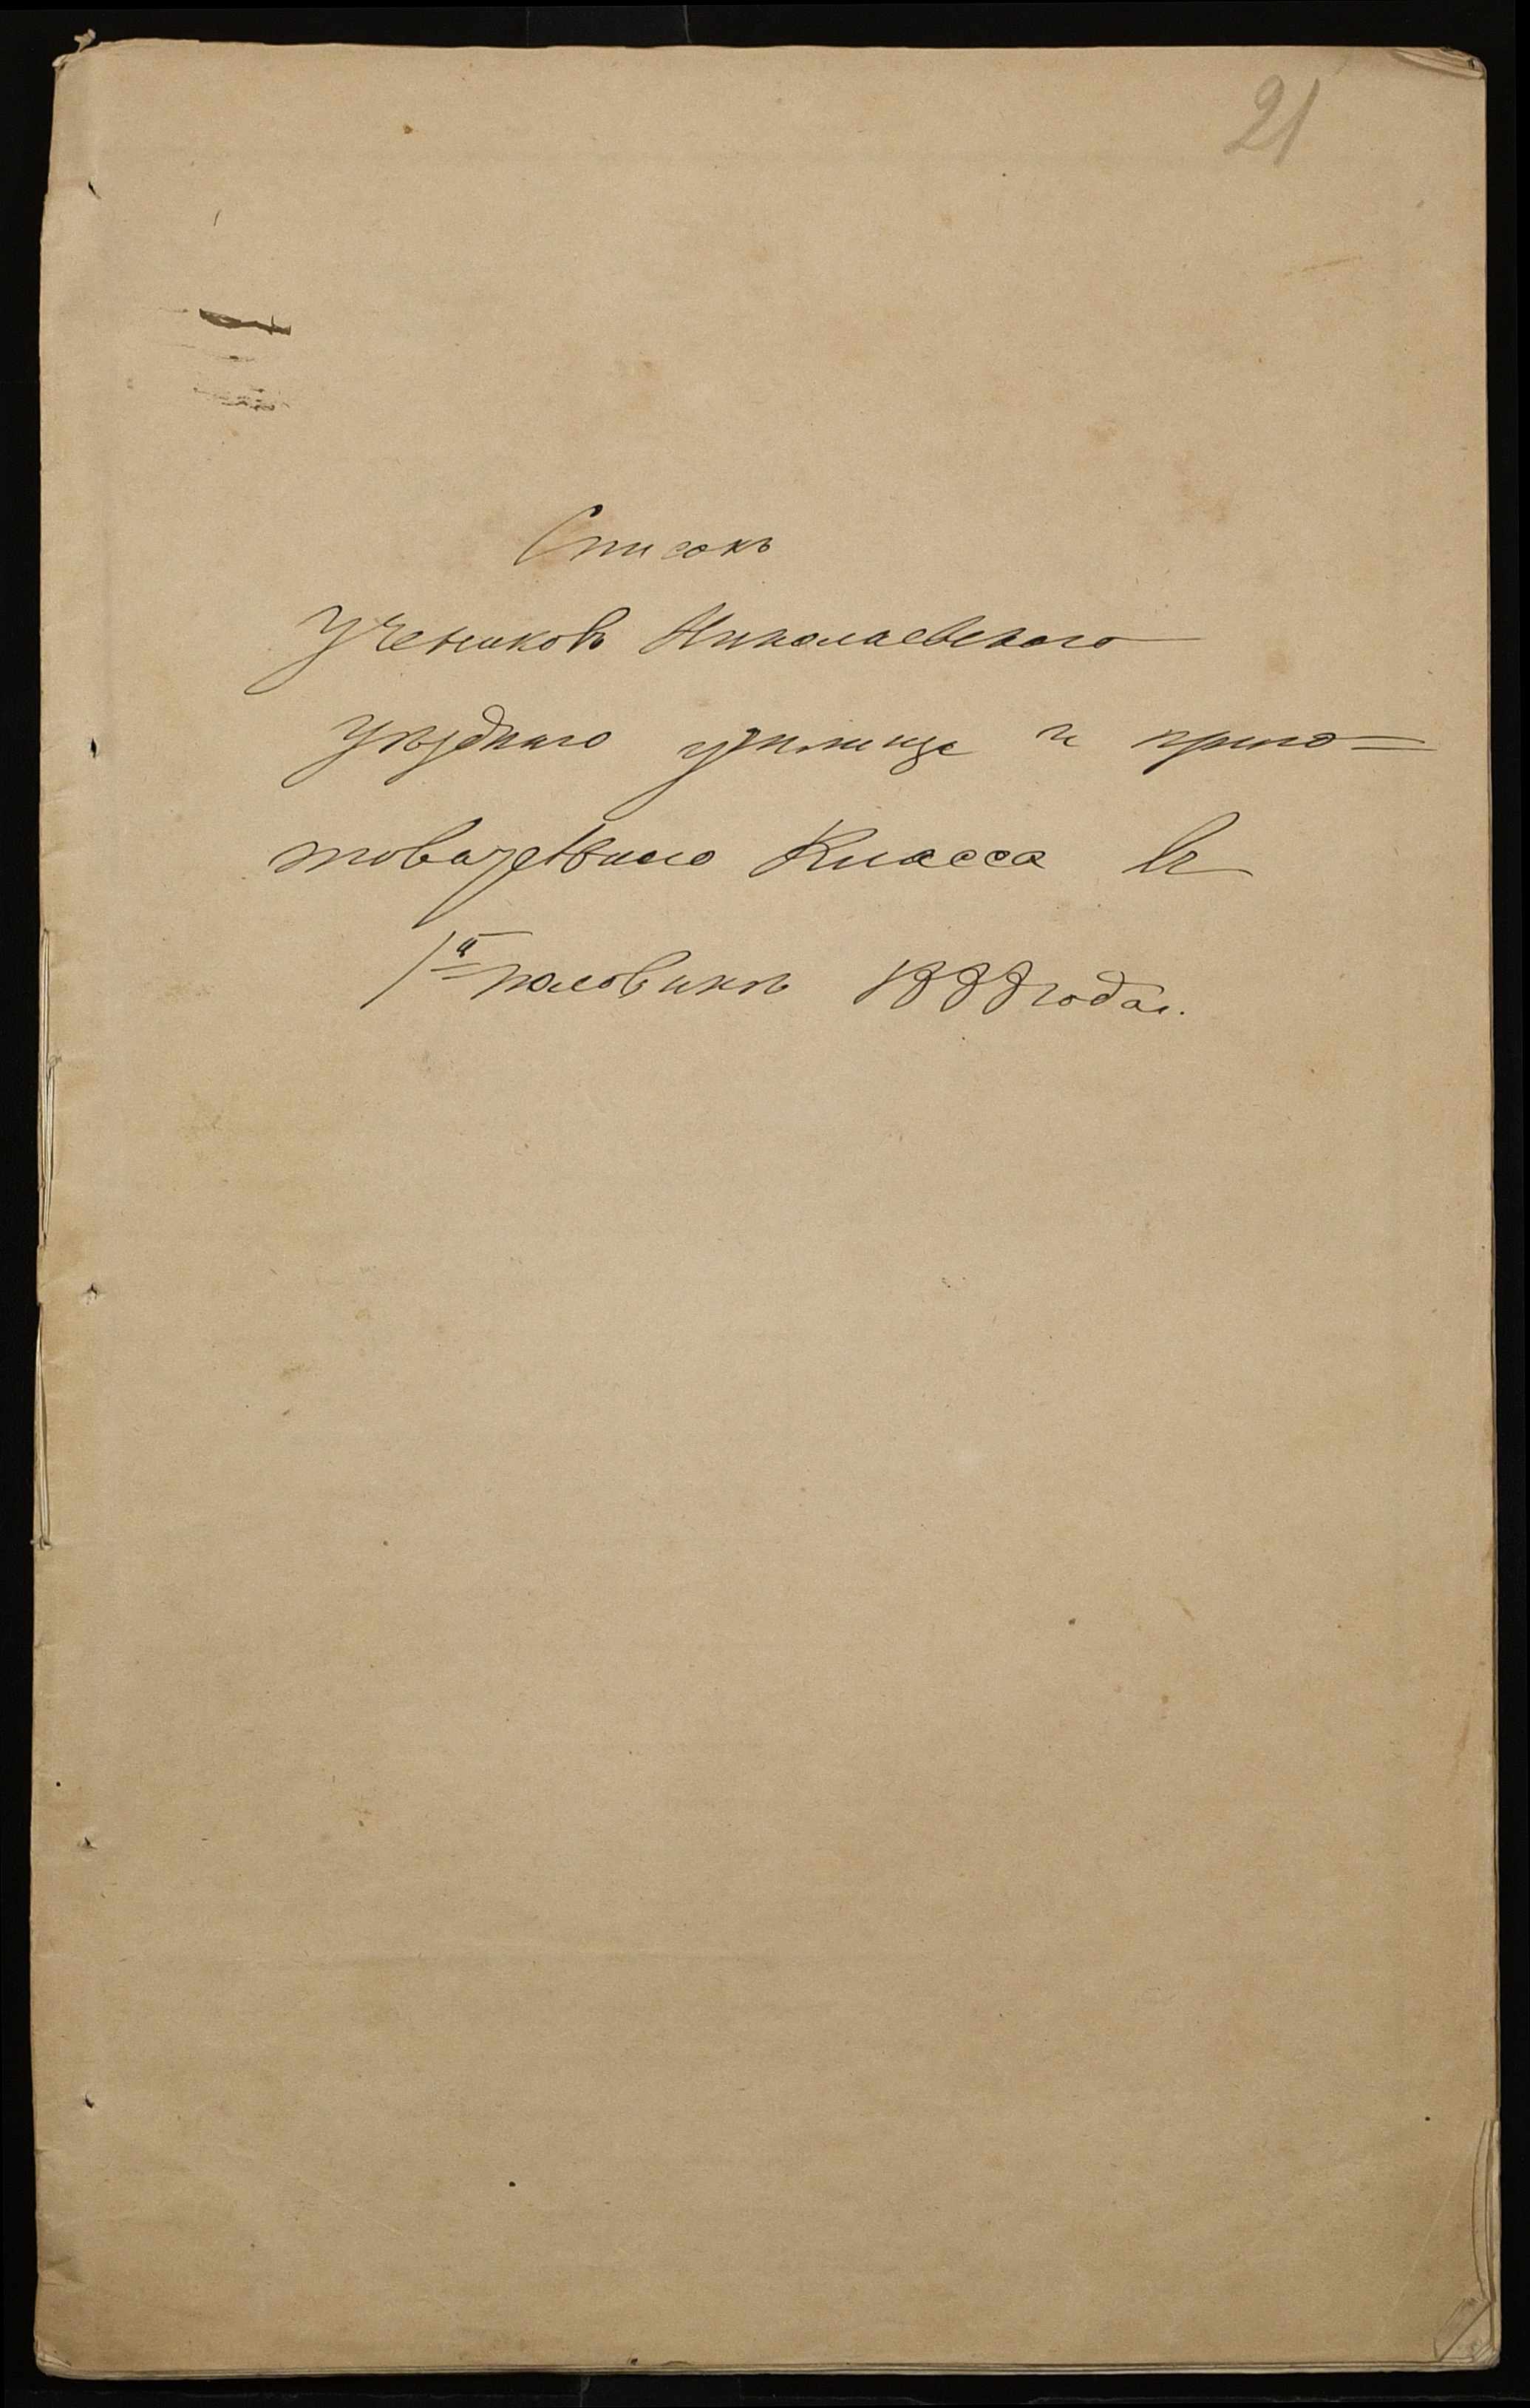 21
Списокъ
Учениковъ Николаевскаго
уѣзднаго училища и приго=
товительнаго Класса въ
1й половинѣ 1888 года.